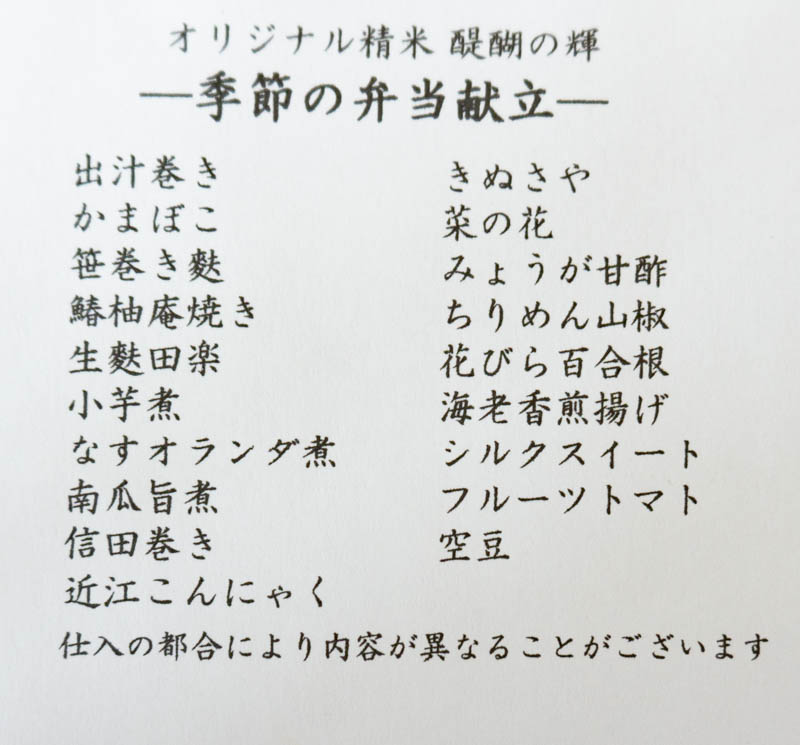 オリジナル精米 醍醐の輝
―季節の弁当献立―
出汁巻き
かまぼこ
笹巻き麩
鰆柚庵焼き
生麩田楽
小芋煮
なすオランダ煮
南瓜旨煮
信田巻き
近江こんにゃく
きぬさや
菜の花
みょうが甘酢
ちりめん山椒
花びら百合根
海老香煎揚げ
シルクスイート
フルーツトマト
空豆
仕入の都合により内容が異なることがございます